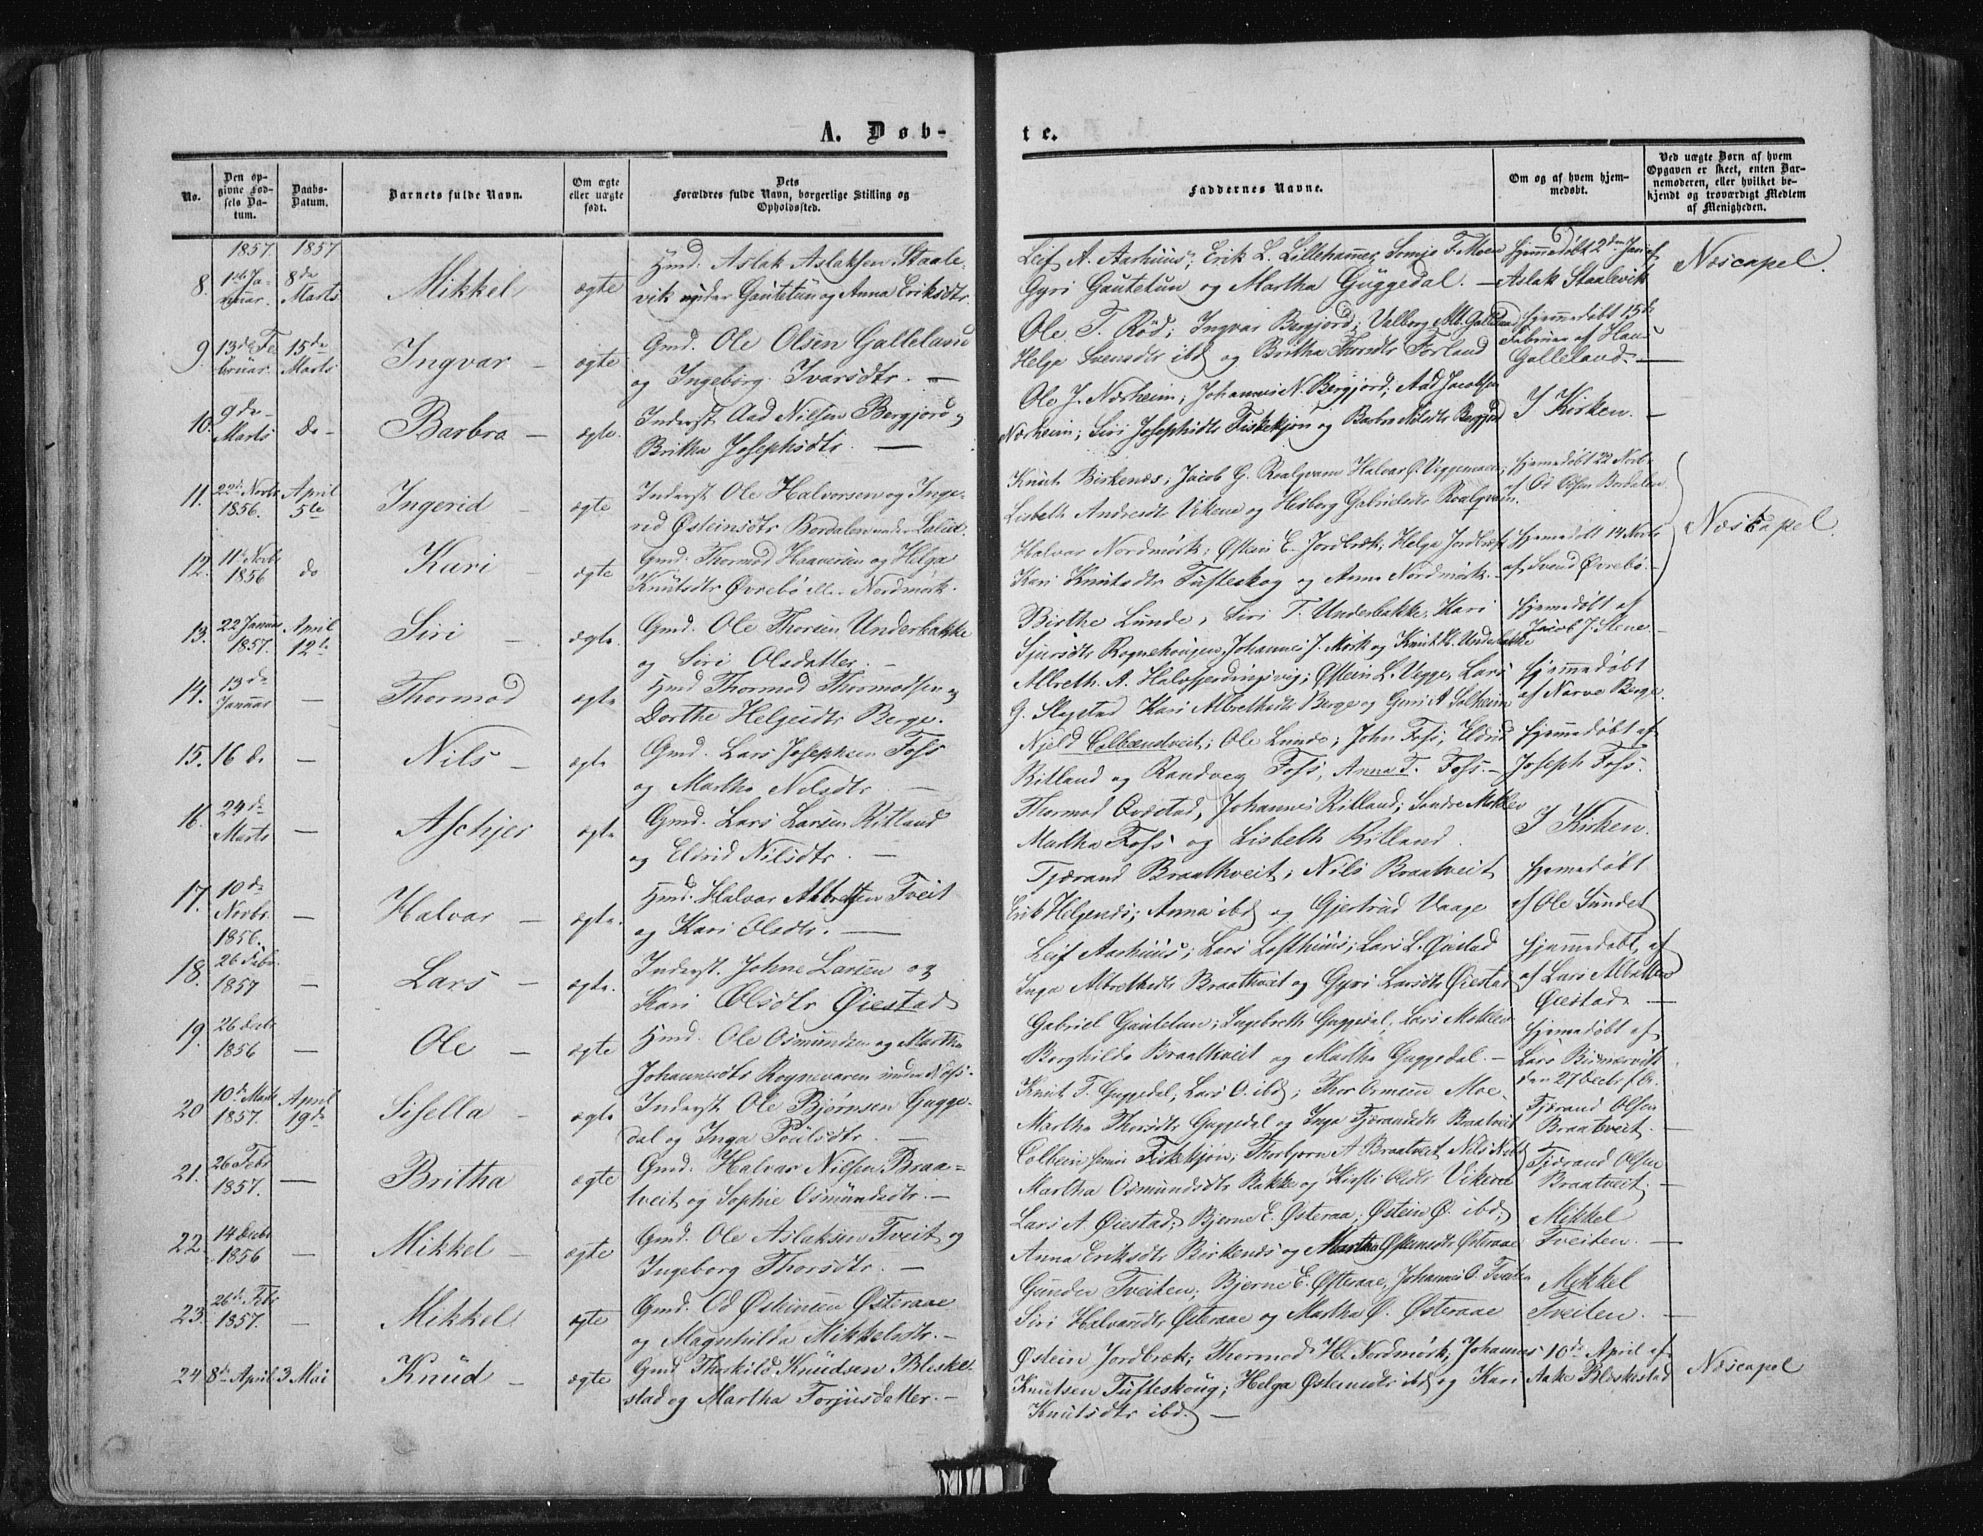 A. Døb-
te.
No.
Den opgivne Fødsels Datum.
Daabs-Datum.
Barnets fulde Navn.
Om ægte eller uægte født.
Dets Forældres fulde Navn, borgerlige Stilling og Opholdssted.
Faddernes Navne.
Om og af hvem hjemmedøbt.
Ved uægte Børn af hvem Opgaven er skeet, enten Barnemoderen, eller hvilket bekjendt og troværdigt Medlem af Menigheden.
1857. 1857
8. 1ste Januar. 8de Marts Mikkel ægte
Hmd. Aslak Aslaksen Staale-
vik under Gautetun og Anna Eriksdtr.
Leif A. Aarhuus; Erik L. Lillehamer, F. Moen
Gyri Gautetun og Martha Guggedal. —
Hjemmedøbt 2den Jan af
Aslak Staalevik
Næscapel.
9. 13de Februar. 15de Marts Ingvar — ægte
Gmd. Ole Olsen Galleland
og Ingeborg Ivarsdtr. —
Ole T. Rød; Ingvar Bergjord; Valborg
Helge Svensdtr ibd og Britha Thorsdtr Førland
Hjemmedøbt 15de
Februar af Hans
Galleland. —
10. 9de Marts do — Barbra — ægte.
Inderst Aad Nilsen Bergjord og
Britha Josephsdtr. —
Ole J. Nærheim; Johannes N. Bergjord; Aad Jacobsen
Nærheim; Siri Josephsdtr Fiskekjøn og Barbra Nilsdtr Bergjord
I Kirken. —
11. 22de Novbr 1856. April 5te Ingerid — ægte
Inderst Ole Halvorsen og Inge-
rid Østeinsdtr Bordalen under
Knut Birkenæs; Jacob G. Roalqvam Halvar Ø.
Lisbeth Andersdtr Vikene og Herborg Gabrielsdtr Roalqvam.
Hjemmedøbt 22 Novbr
af Od Olsen Bordalen
Næscapel.
12. 11te Novbr 1856 do Kari — ægte
Gmd. Thormod Haavarsen og Helga
Knutsdtr Øvrebø ell. Nordmork.
Halvar Nordmork; Østein E. Jordbræk; Helga Jordbræk
Kari Knutsdtr Tufteskog og Anna Nordmork. —
Hjemmedøbt 14 Novbr
af Svend Øvrebø —
13. 22 Januar 1857. April 12te Siri — ægte.
Gmd. Ole Thorsen Underbakke
og Siri Olsdatter. —
Birthe Lunde, Siri T. Underbakke, Kari
Sjursdtr Rognehougen, Johannes J. Mork og Knut H. Underbakke
Hjemmedøbt af
Jacob J. Stene —
14. 13de Januar — Thormod ægte
Hmd Thormod Thormodsen og
Dorthe Helgesdtr Berge.
Albreth A. Halvfjerdingsvig; Østein L. Vegge, Lars
G. Slagstad Kari Albrethsdtr Berge og Guri A. Solheim
Hjemmedøbt
af Narve Berge.
15. 16 do — Nils — ægte
Gmd. Lars Josephsen Foss
og Martha Nilsdtr. —
Njeld Colbænstveit; Ole Lunde; John Foss; Eldrid
Ritland og Randveg Foss, Anna T. Foss. —
Hjemmedøbt af
Joseph Foss.
16. 24de Marts — Aschjer ægte
Gmd. Lars Larsen Ritland
og Eldrid Nilsdtr. —
Thormod Qvæstad, Johannes Ritland; Sondre Mokleiv
Martha Foss og Lisbeth Ritland.
I Kirken.
17. 10de Novbr. 1856. — Halvar — ægte.
Hmd. Halvar Albretsen Tveit
og Kari Olsdtr. —
Tjærand Braathveit; Nils Braatveit
Erik Helgenæs; Anna ibd og Gjertrud Vaage
Hjemedøbt
af Ole Sundet
18. 26 Febr. 1857 — Lars — ægte.
Inderst. Johne Larsen og
Kari Olsdtr Øiestad
Leif Aarhuus; Lars Lofthuus; Lars L. Øiestad
Inga Albrethsdtr Braathveit og Gyri Larsdtr Øiestad
Hjemmedøbt af
af Lars Albretsen
Øiestad. —
19. 26 Decbr 1856 — Ole — ægte
Hmd. Ole Osmundsen og Martha
Johannesdtr Rognevaren under N. Foss. —
Gabriel Gautetun; Ingebreth Guggedal, Lars Mokleiv
Borghilde Braathveit og Martha Guggedal. —
Hjemedøbt af
Lars
den 27 Decbr f. A.
20 10de Marts 1857. April 19de Sisella — ægte
Inderst Ole Bjørnsen Gugge-
dal og Inga Poulsdtr. —
Knut T. Guggedal, Lars O. ibd; Thor Ormsen Moe —
Martha Thorsdtr Guggedal og Inga Tjærandsdtr Braatveit
Tjærand Olsen
Braatveit. —
21. 26 Febr 1857. — Britha — ægte
Gmd. Halvar Nilsen Braa-
tveit og Sophie Osmundsdtr. —
Colbein Fiskekjøn; Thorbjørn A Braatveit Nils N. ibd
Martha Osmundsdtr Bakke og Kirsti Olsdtr Vikene
Tjærand Olsen
Braatveit. —
22. 14 Decbr 1856 — Mikkel — ægte
Gmd. Ole Aslaksen Tveit og
Ingeborg Thorsdtr. —
Lars A. Øiestad; Bjerne E. Østeraa; Østein Ø. ibd;
Anna Eriksdtr Birkenæs og Martha Østensdtr Østeraae
Mikkel
Tveiten. —
23. 26de Febr 1857. — Mikkel — ægte
Gmd. Od Østeinsen Østeraae
og Magnhilda Mikkelsdtr. —
Gunder Tveiten; Bjerne E. Østeraae, Johannes O. Tveiten
Siri Halvarsdtr Østeraae og Martha Ø. Østeraae
Mikkel
Tveiten. —
24. 8de April 3 Mai Knud — ægte
Gmd Thorkild Knudsen Bleske-
stad og Martha Torjusdatter. —
Østein Jordbræk; Thormod H. Nordmork; Johannes
Knutsen Tufteskoug; Helga Østensdtr ibd og Kari
Knutsdtr ibd. —
10de April af
Aake Bleskestad
Næscapel